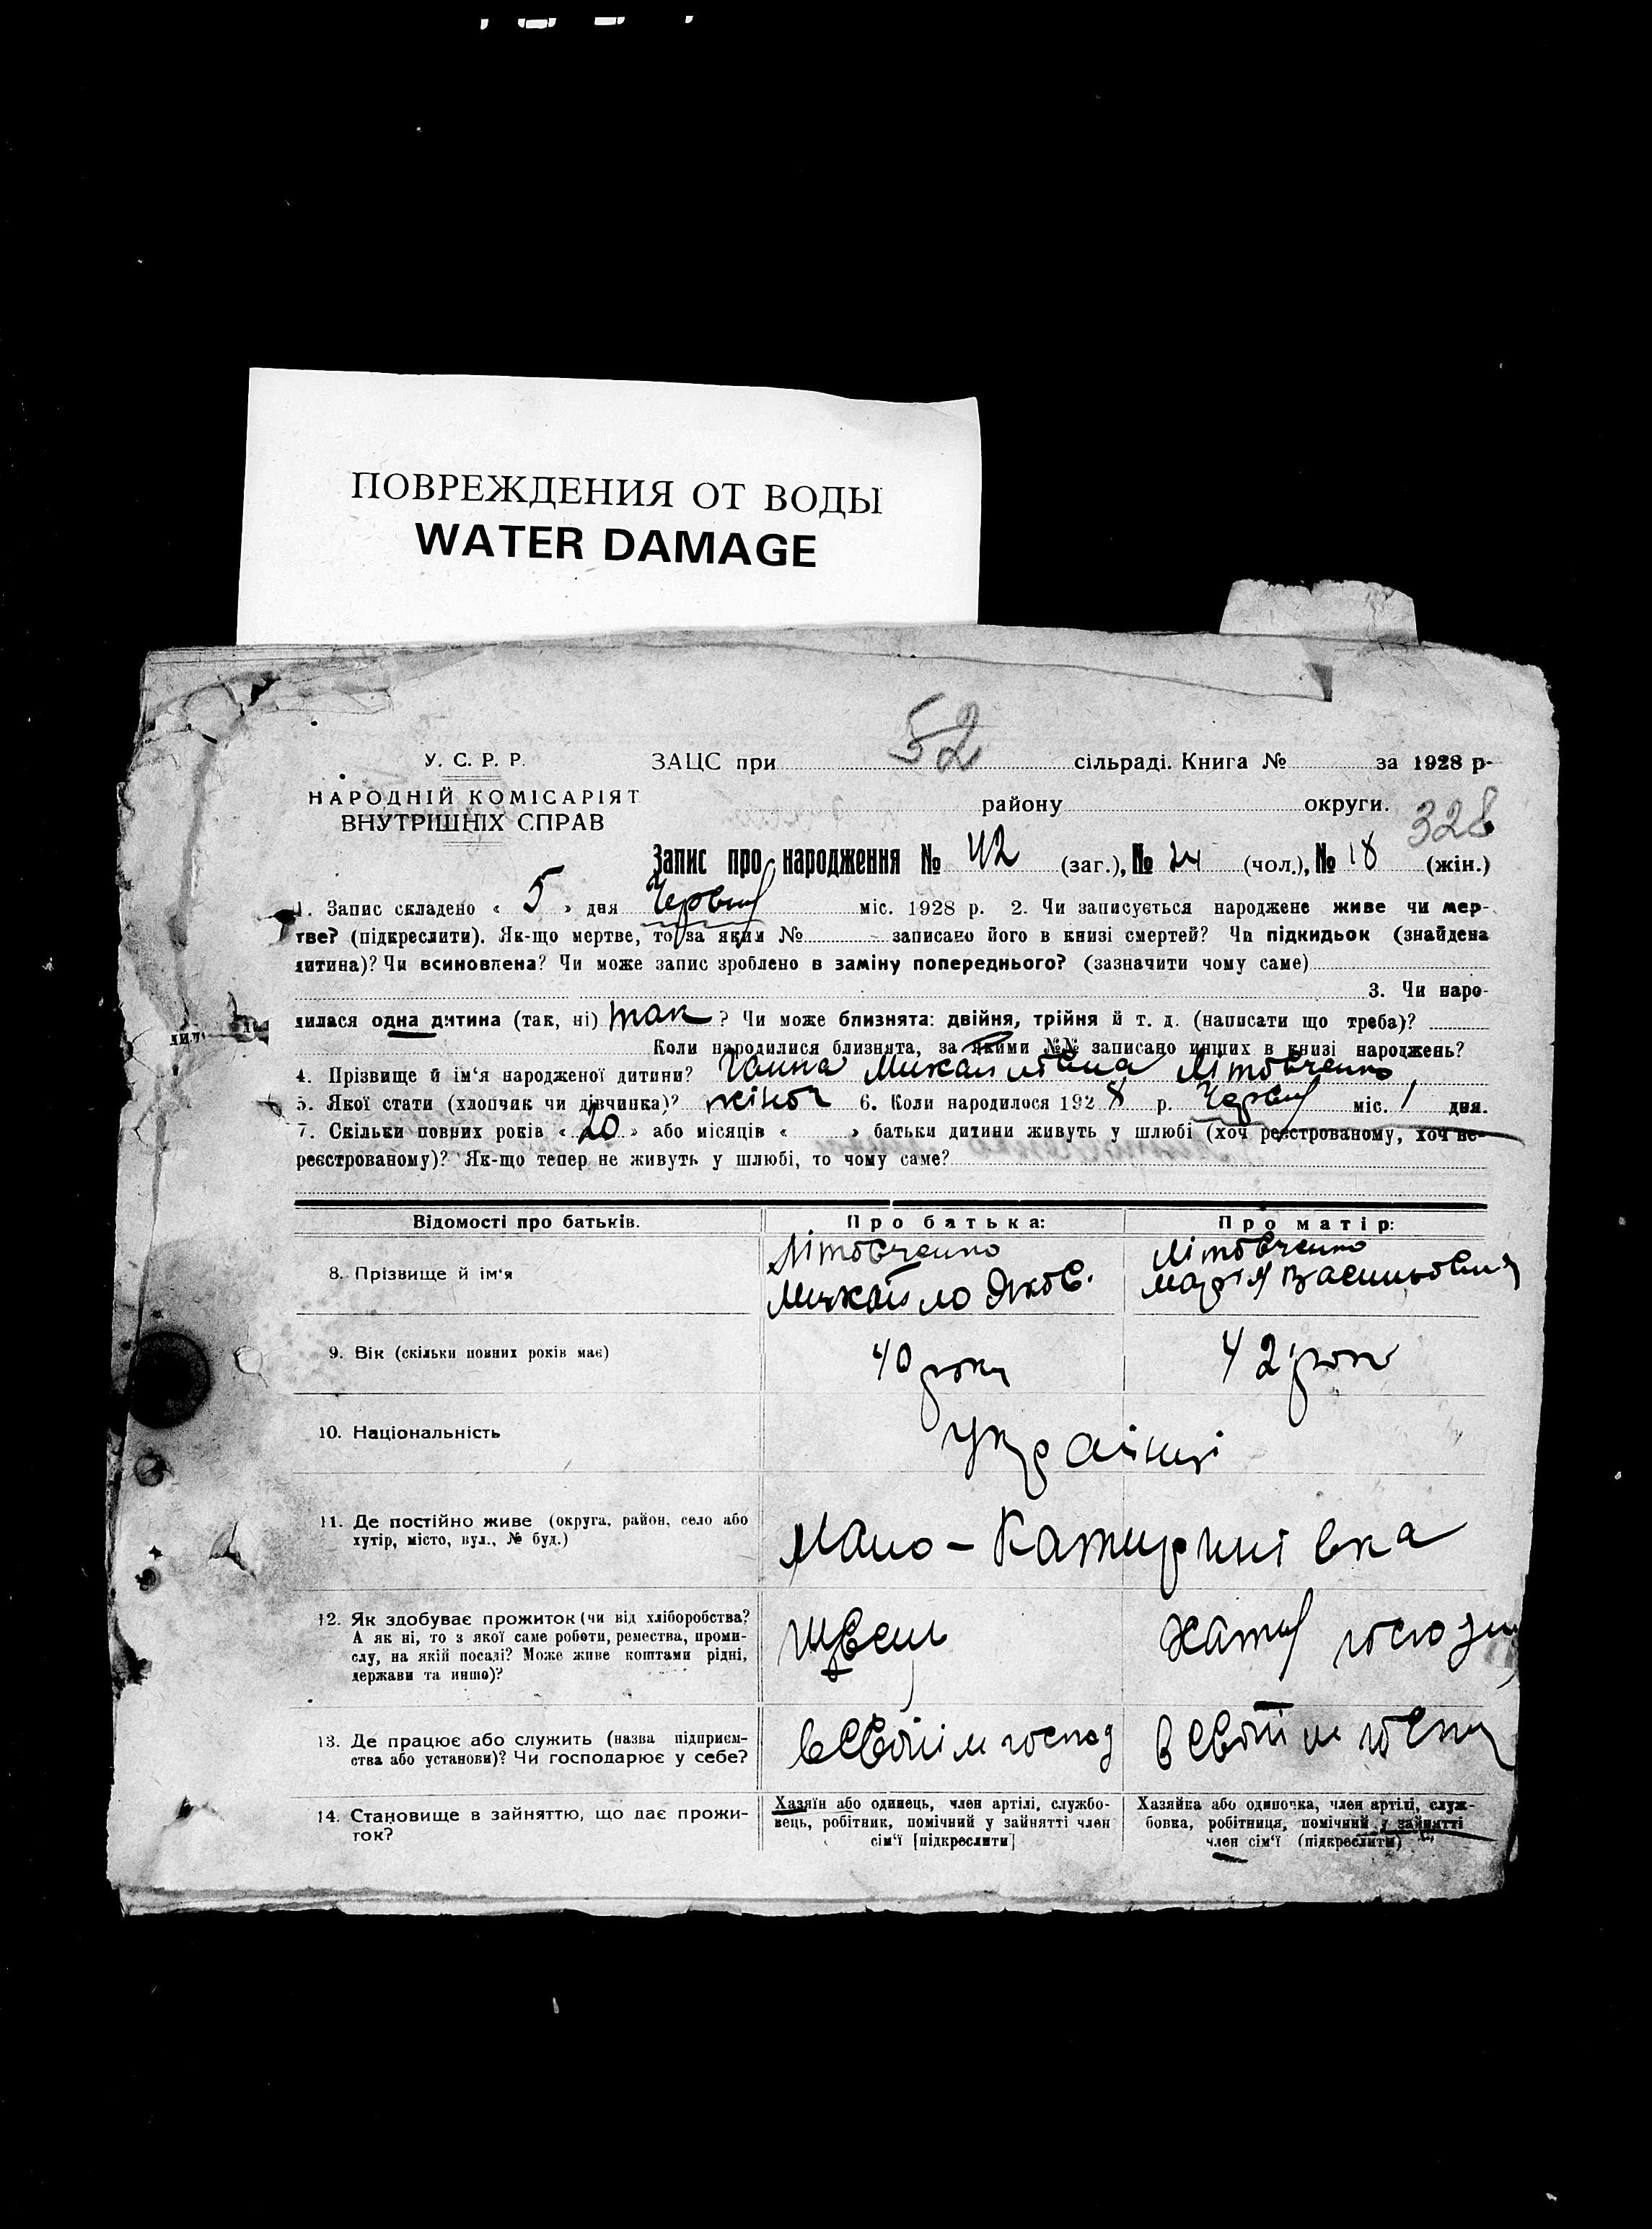 ПОВРЕЖДЕНИЯ ОТ ВОДЫ
WATER DAMAGE
52
У. С. Р. Р.
НАРОДНІЙ КОМІСАРІЯТ
ВНУТРІШНІХ СПРАВ
ЗАЦС при сільраді. Книга № за 1928 р-
району округи.
328
Запис про народження № 42 (заг.), № 24 (чол.), № 18 (жін.)
1. Запис складено « 5 » дня Червня міс. 1928 р. 2. Чи записується народжене живе чи мер-
тве? (підкреслити). Як-що мертве, то за яким № записано його в книзі смертей? Чи підкидьок (знайдена
дитина)? Чи всиновлена? Чи може запис зроблено в заміну попереднього? (зазначити чому саме)
3. Чи наро-
дилася одна дитина (так, ні) так ? Чи може близнята: двійня, трійня й т. д. (написати що треба)?
Коли народилися близнята, за якими №№ записано инших в книзі народжень?
4. Прізвище й ім'я народженої дитини? Ганна Михайловна Літовченко
5. Якої стати (хлопчик чи дівчинка)? жіноч 6. Коли народилося 1928 р. Червня міс. 1 дня.
7. Скільки повних років « 20 » або місяців « » батьки дитини живуть у шлюбі (хоч реєстрованому, хоч не-
реєстрованому)? Як-що тепер не живуть у шлюбі, то чому саме?
Відомості про батьків. Про батька: Про матір:
8. Прізвище й ім'я
Літовченко
Михайло Яков.
Літовченко
Марія Васильовна
9. Вік (скільки повних років має) 40 роки 42 роки
10. Національність Українці
11. Де постійно живе (округа, район, село або
хутір, місто, вул., № буд.)
Мало-Катиринівка
12. Як здобуває прожиток (чи від хліборобства?
А як ні, то з якої саме роботи, ремества, проми-
слу, на якій посаді? Може живе коштами рідні,
держави та инше)?
Швець
Хатня
13. Де працює або служить (назва підприєм-
ства або установи)? Чи господарює у себе?
в своїм господ
в своїм
14. Становище в зайняттю, що дає прожи-
ток?
Хазяїн або одинець, член артілі, службо-
вець, робітник, помічний у зайнятті член
сім'ї [підкреслити]
Хазяйка або одиночка, член артілі, служ-
бовка, робітниця, помічний у зайнятті
член сім'ї (підкреслити)